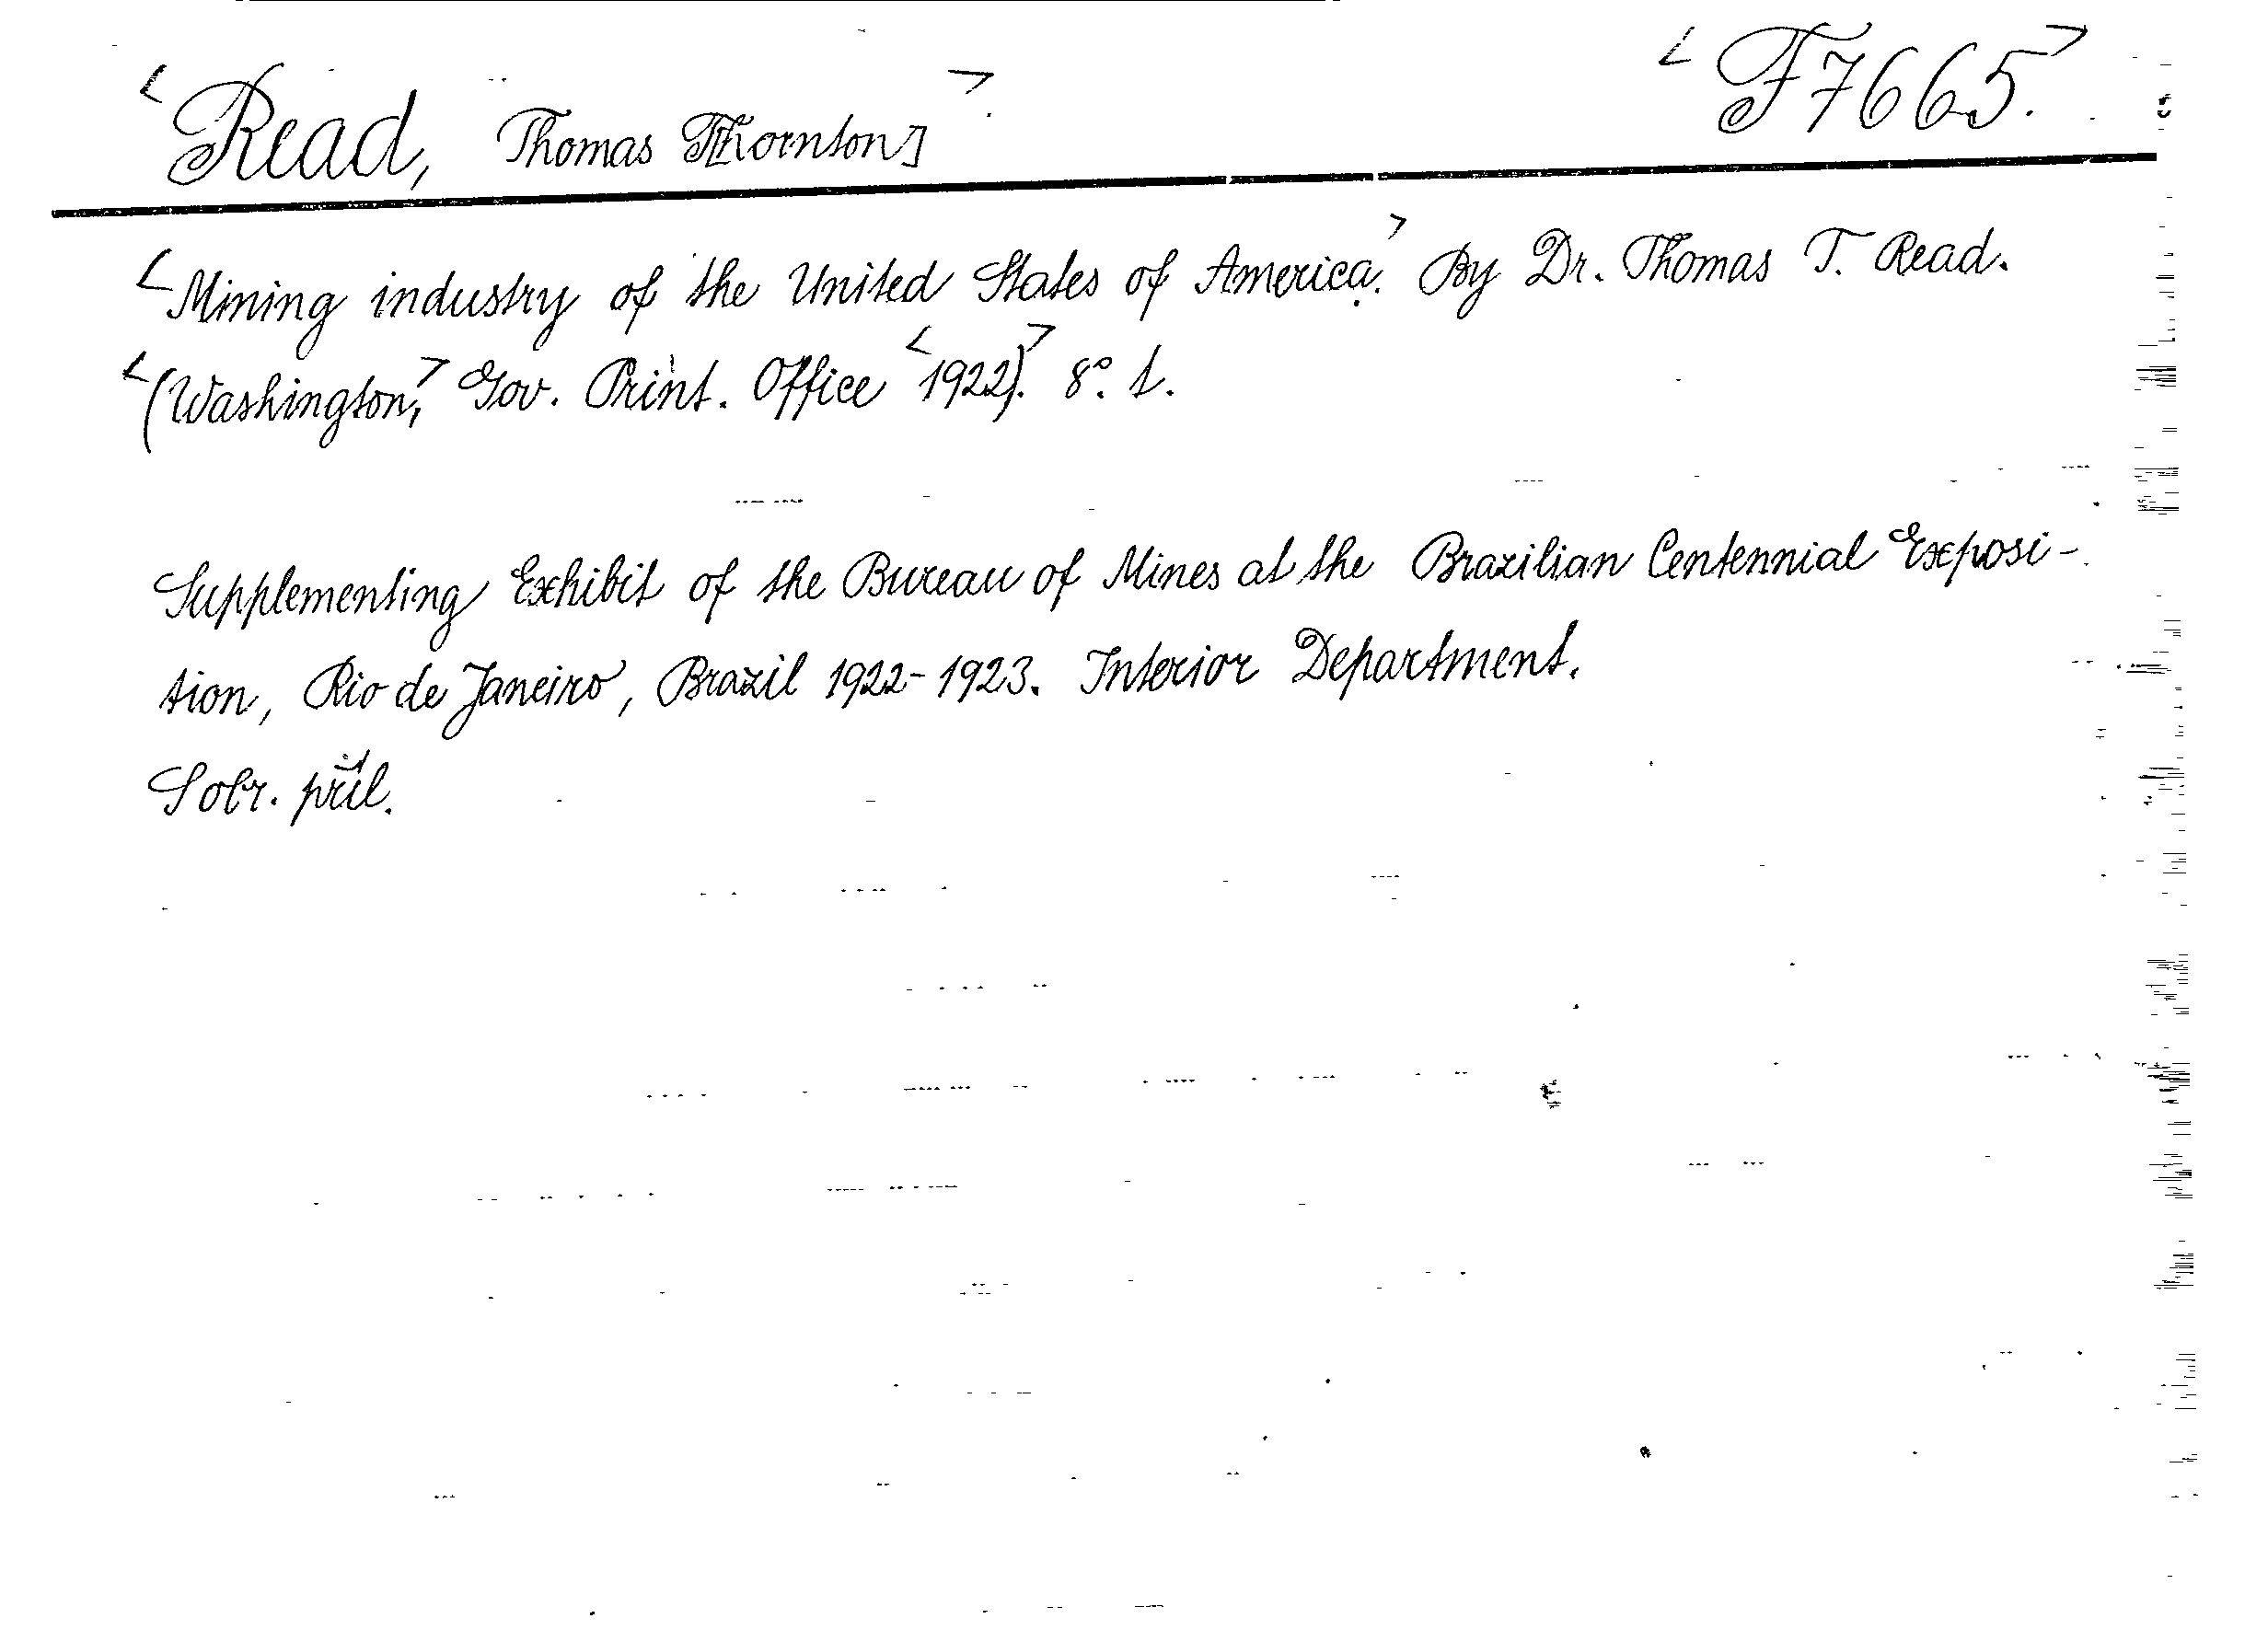 <Read, Thomas T[hornton]>. <F7665>.
<Mining industry of the United States of America.> By Dr. Thomas T. Read.
<(Washington,> Gov. Print. Office <1922).> 8°. 1.
Supplementing Exhibit of the Bureau of Mines at the Brazilian Centennial Exposi-
tion, Rio de Janeiro, Brazil 1922-1923. Interior Department.
Sobr. příl.